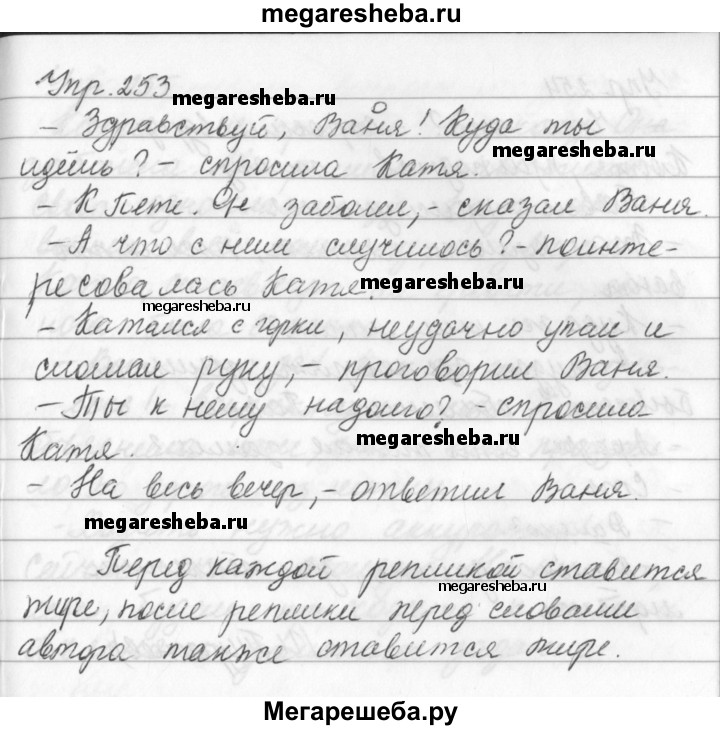 megaresheba.ru
Упр. 253
megaresheba.ru
– Здравствуй, Ваня! Куда ты
megaresheba.ru
идёшь? – спросила Катя.
– К Пете. Он заболел, – сказал Ваня.
– А что с ним случилось? – поинте-
ресовалась Катя.
megaresheba.ru
megaresheba.ru
– Катался с горки, неудачно упал и
сломал руку, – проговорил Ваня.
– Ты к нему надолго? – спросила
Катя.
megaresheba.ru
– На весь вечер, – ответил Ваня.
megaresheba.ru
Перед каждой репликой ставится
megaresheba.ru
тире, после реплики перед словами
автора также ставится тире.
megaresheba.ru
Мегарешеба.ру